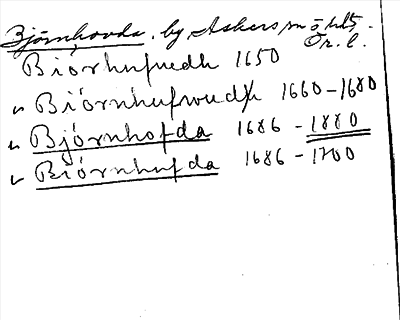 Björnhovda, by Askers sn Ö hd
Ör. l.
Biörhufuedh 1650
" Biörnhufwudh 1660-1680
" Bjórnhofda 1686 - 1880
" Biórnhufda 1686 - 1700